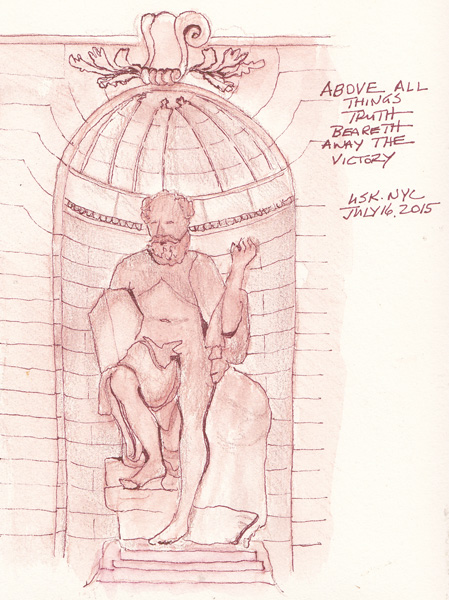 ABOVE ALL
THINGS
TRUTH
BEARETH
AWAY THE
VICTORY
USK·NYC
JULY 16, 2015